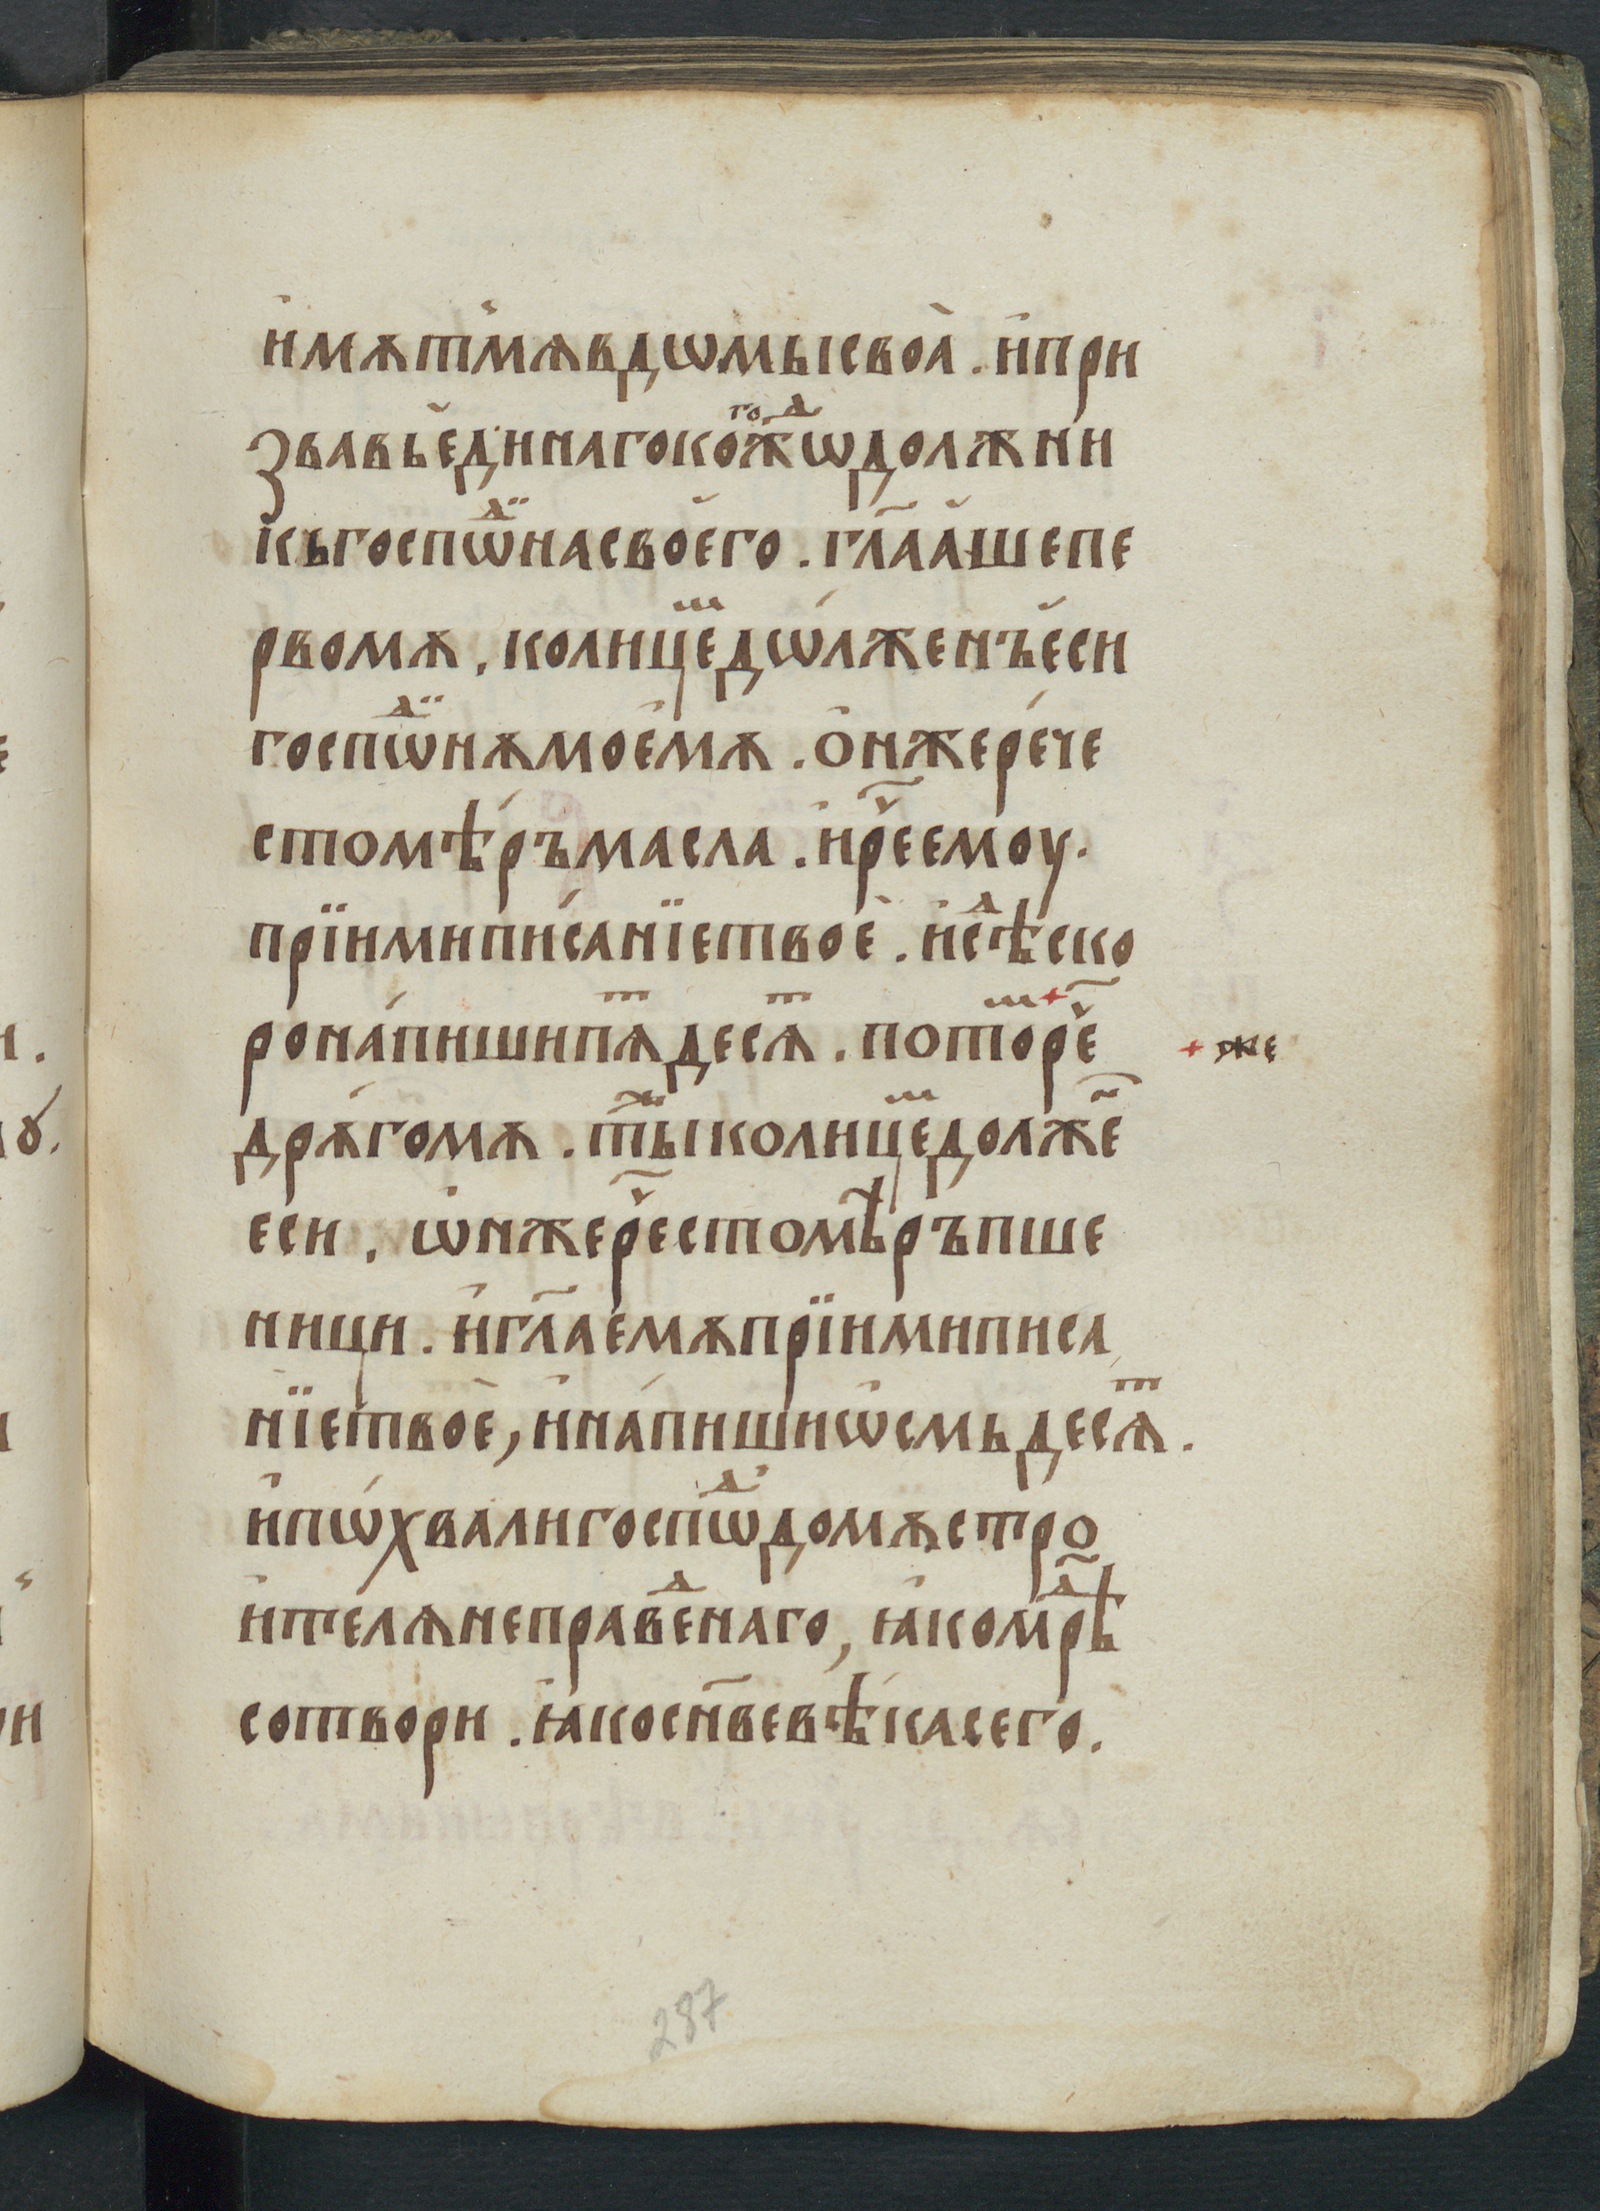 и҆мѫтмѧвдѡмысвоѧ̀. и҆при
звавъе҆динагокого҆жⷣѡдолжни
къгоспѡⷣ҇насвоего. гл҃аа҆шепе
рвомѫ. колицеⷨдѡ́лженъе҆си
госпѡⷣ҇нѫмоемѫ. ѻ҆нжере́че
стомѣ́ръмасла. и҆рⷱ҇еемоу.
прїимипи́санїетвоѐ. и҆сѣⷣско
рона́пишипѧⷮдесѧⷮ. потоⷨрⷱ҇е + же
дрѫ́гомѫ. тⷤыколицеⷨдолжеⷩ҇
еси. ѡ҆нжерⷱ҇естомѣ̑ръпше
ници. и҆гл҃аемѫпрїимиписа
нїетвоѐ, и҆на́пишиѡ҆смьдесѧⷮ.
и҆пѡ́хвалигоспѡⷣ҇домѫстро
и҆телѧнеправеⷣнаго, ꙗ҆комⷣрѣ
сотвори. ꙗ҆коси҃вевѣ́касего.
287